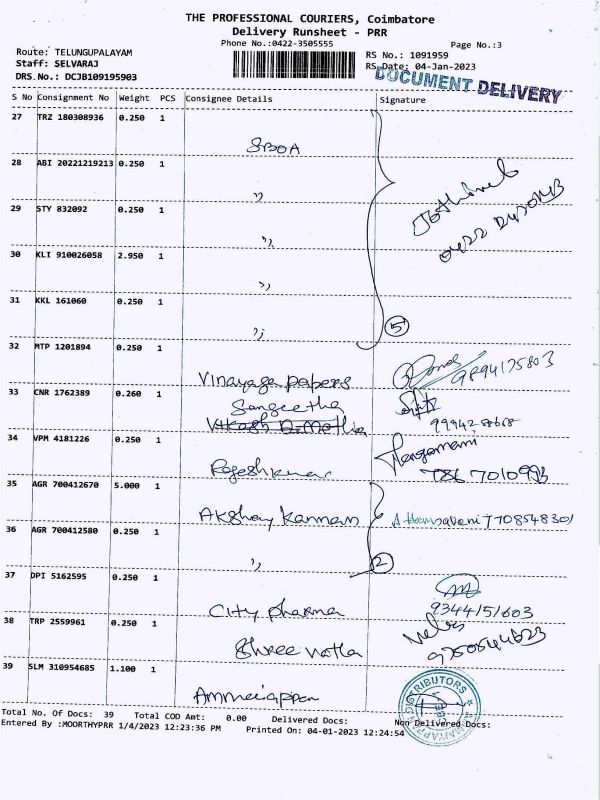 THE PROFESSIONAL COURIERS, Coimbatore
Delivery Runsheet - PRR
Phone No.:0422-3505555
Page No.:3
Route: TELUNGUPALAYAM
RS No.: 1091959
Staff: SELVARAJ
RS Date: 04-Jan-2023
DRS.No.: DCJB109195903
DOCUMENT DELIVERY
S No Consignment No Weight PCS Consignee Details Signature
27 TRZ 180308936 0.250 1
SBOA
28 ABI 20221219213 0.250 1
"
29 STY 832092 0.250 1
"
30 KLI 910026058 2.950 1
"
31 KKL 161060 0.250 1
" 5
32 MTP 1201894 0.250 1
Vinayaga papers 9894175803
33 CNR 1762389 0.260 1
Sangeetha
34 VPM 4181226 0.250 1
Rajeshkumar 7867010993
35 AGR 700412670 5.000 1
Akshay Kannan 7708548301
36 AGR 700412580 0.250 1
" 2
37 DPI 5162595 0.250 1
City pharma 9344151603
38 TRP 2559961 0.250 1
Shree
39 SLM 310954685 1.100 1
Ammeiappan
Total No. Of Docs: 39 Total COD Amt: 0.00 Delivered Docs: Non Delivered Docs:
Entered By :MOORTHYPRR 1/4/2023 12:23:36 PM Printed On: 04-01-2023 12:24:54